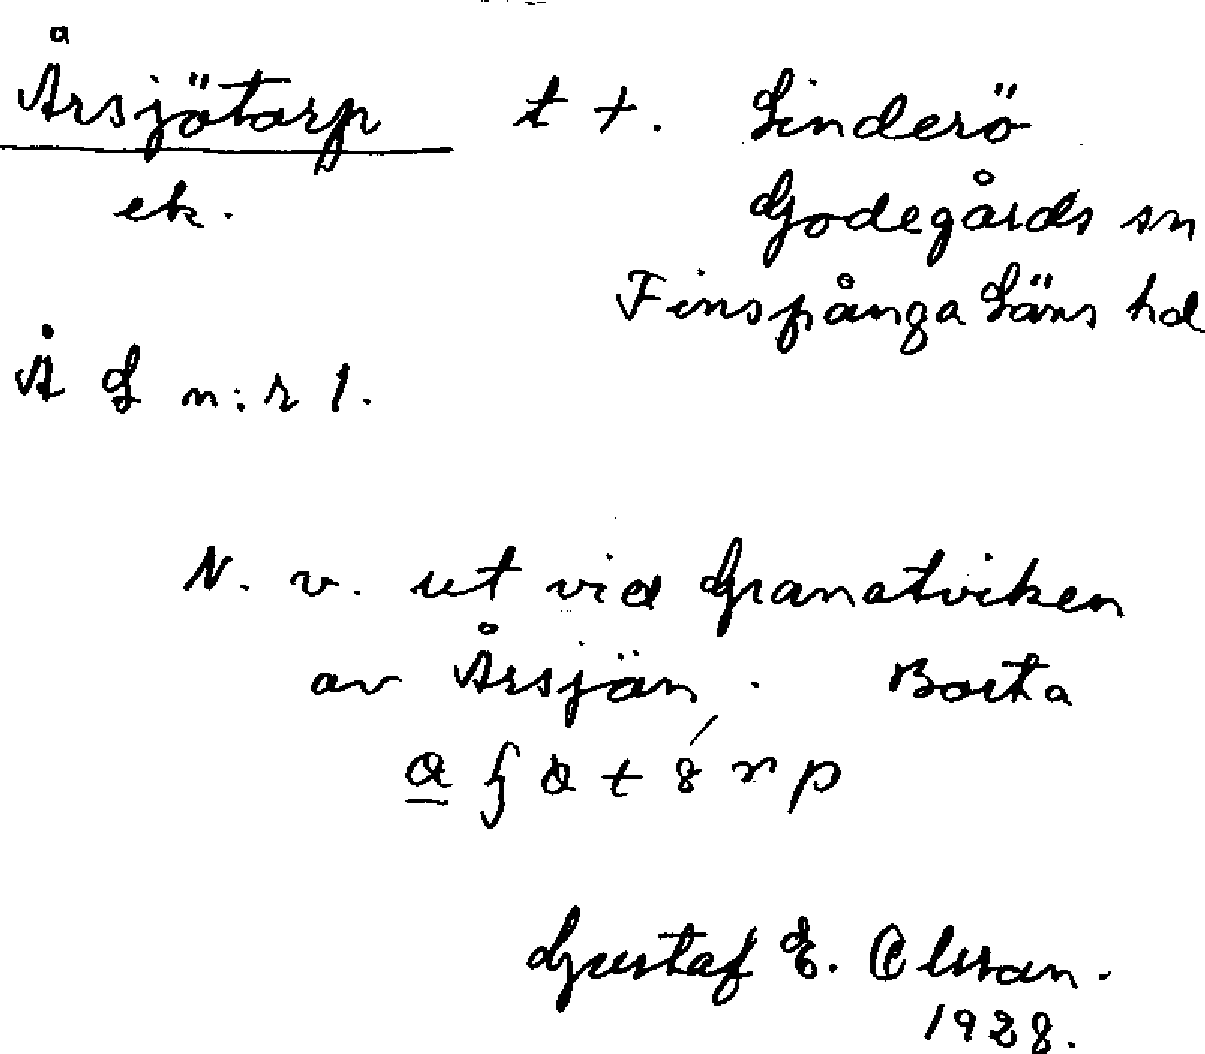 Årsjötorp t +. Linderö
ek. Godegårds sn
Finspånga Läns hd
Å L n:r 1.
N. v. ut vid Granatviken
av Årsjön. Borta
Gustaf E. Olsson.
1928.